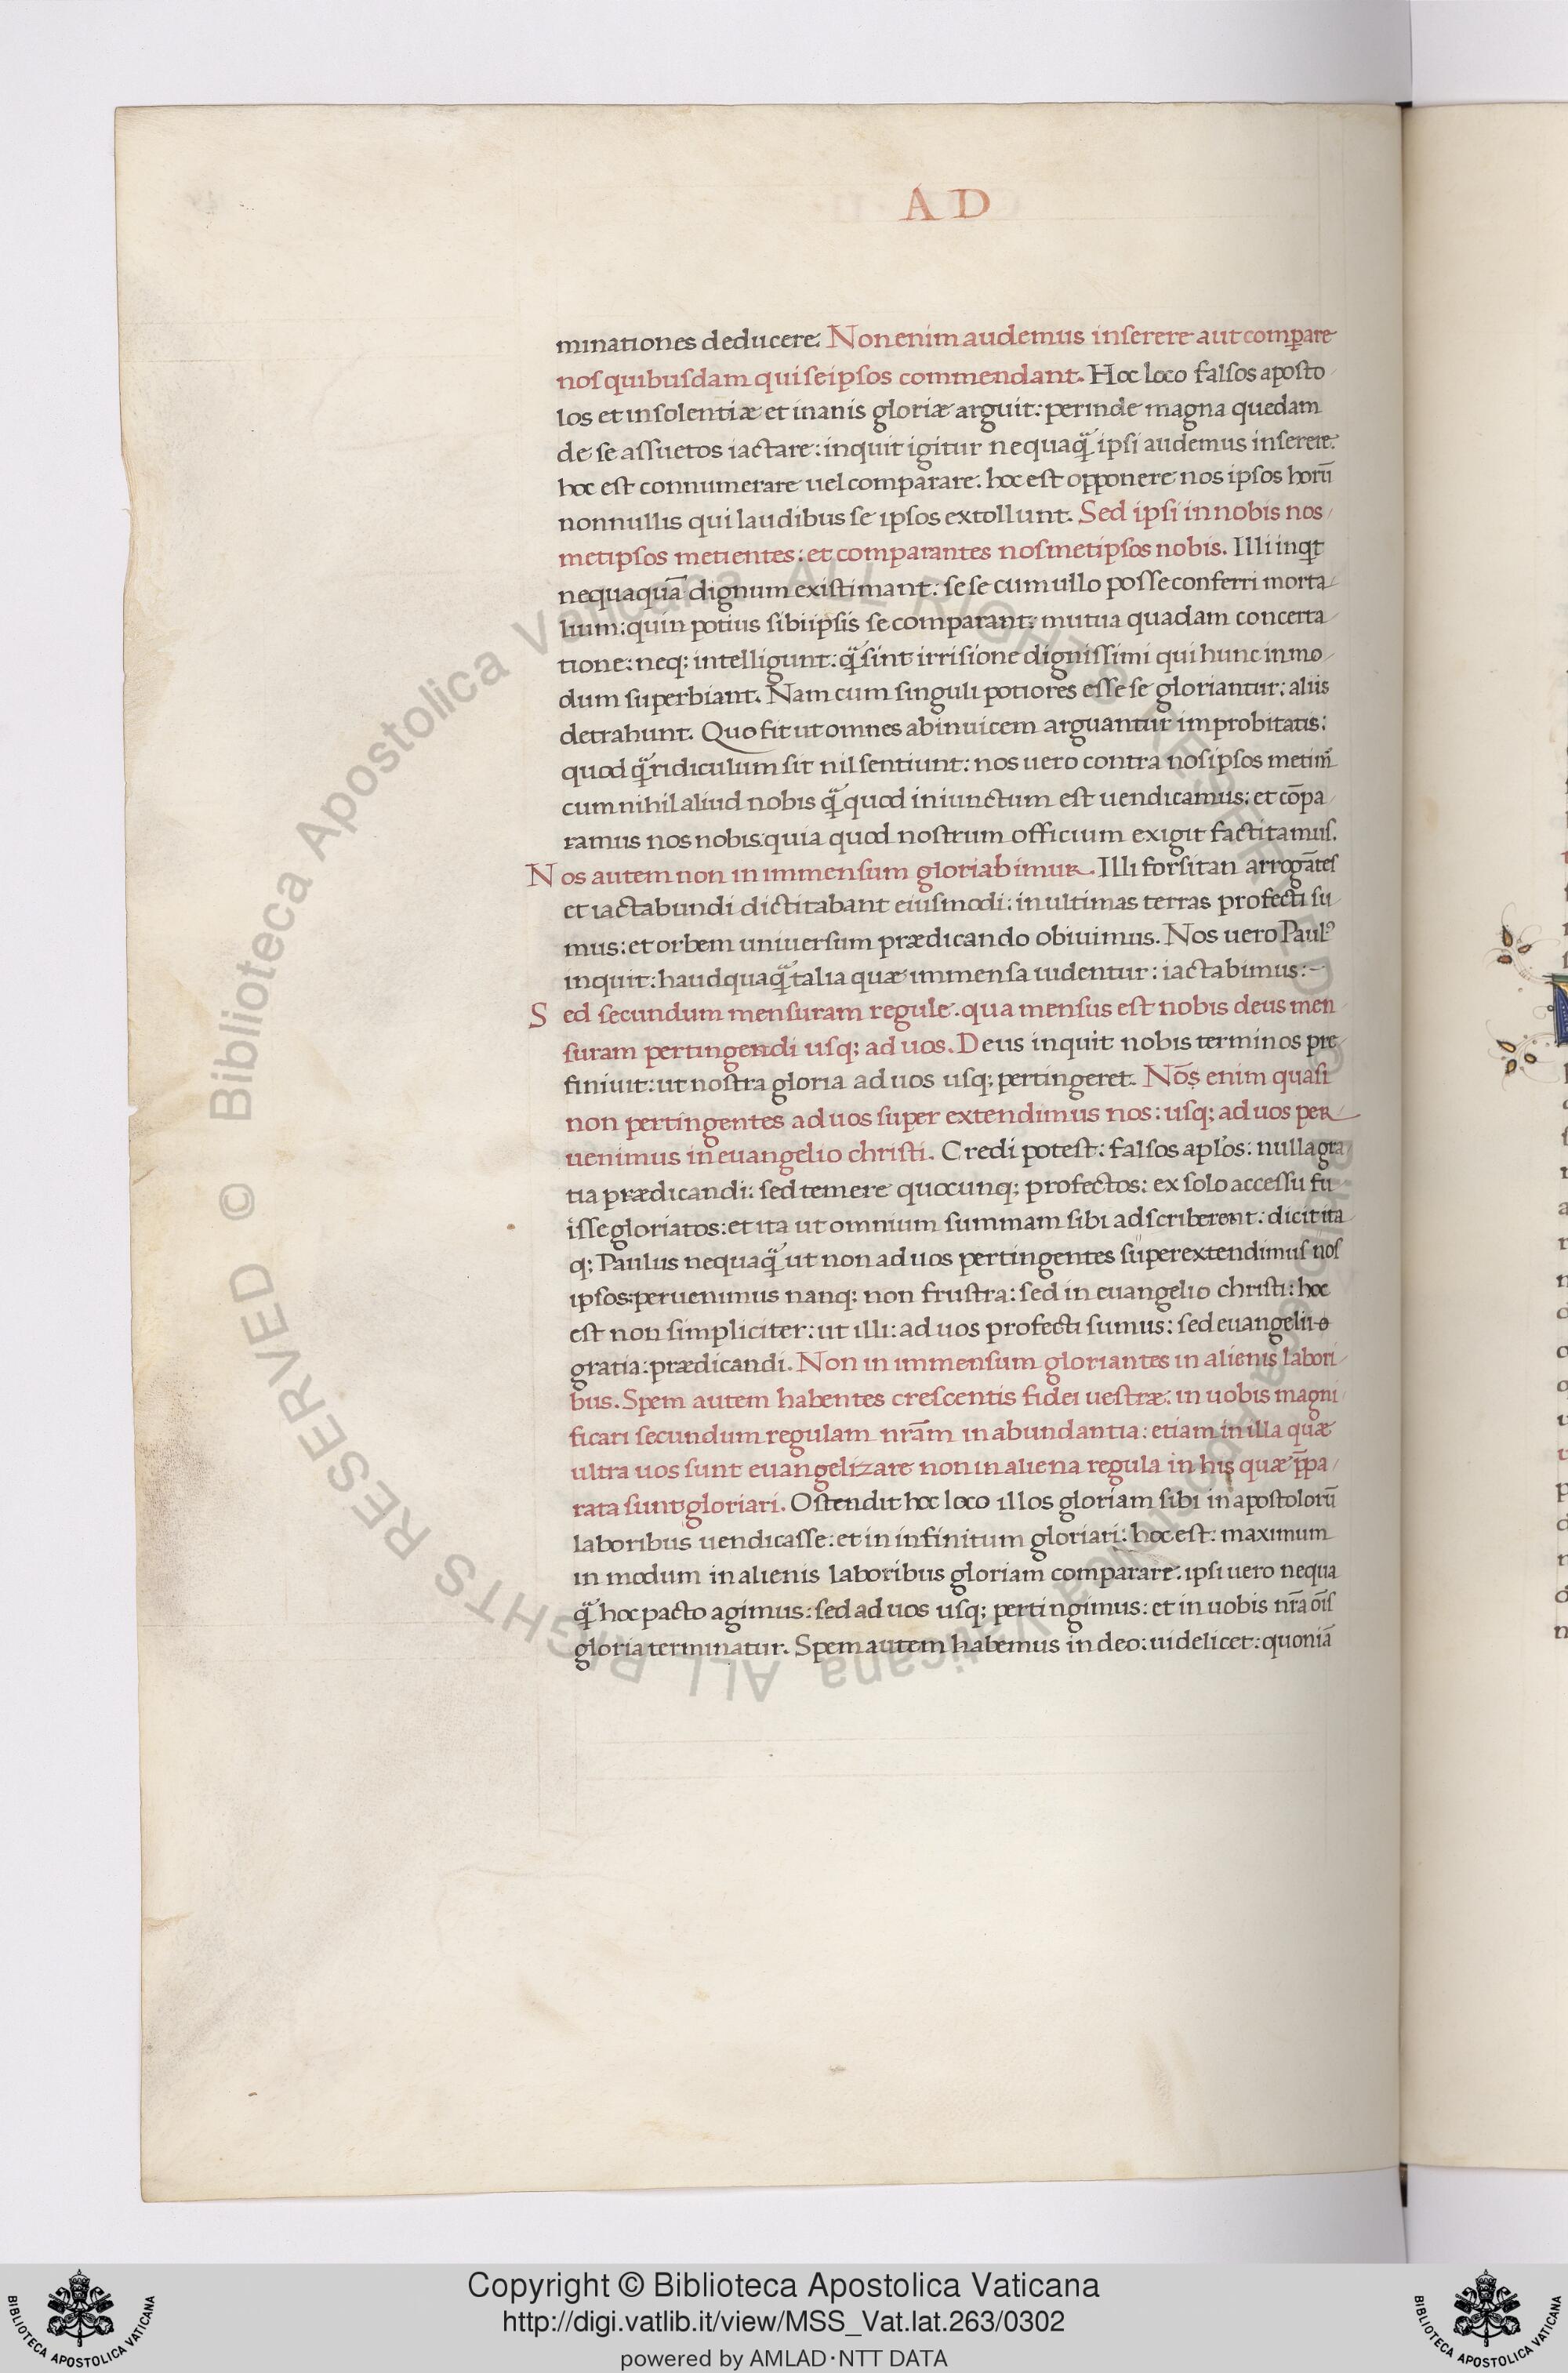 A D
minationes deducere. Non enim audemus inserere aut comꝑare
nos quibusdam qui seipsos commendant. Hoc loco falsos aposto
los et insolentiæ et inanis gloriæ arguit: perinde magna quedam
de se assuetos iactare: inquit igitur nequaq̃ ipsi audemus inserere:
hoc est connumerare uel comparare. hoc est opponere nos ipsos horū
nonnullis qui laudibus se ipsos extollunt. Sed ipsi in nobis nos
metipsos metientes: et comparantes nosmetipsos nobis. Illi inqt
nequaquā dignum existimant: sese cum ullo posse conferri morta
lium: quin potius sibiipsis se comparant: mutua quadam concerta
tione: neq; intelligunt: q̃ sint irrisione dignissimi qui hunc in mo
dum superbiant. Nam cum singuli potiores esse se gloriantur: aliis
detrahunt. Quo fit ut omnes abinuicem arguantur improbitatis:
quod q̃ ridiculum sit nil sentiunt: nos uero contra nosipsos metim̃
cum nihil aliud nobis q̃ quod iniunctum est uendicamus: et cōpa
ramus nos nobis. quia quod nostrum officium exigit factitamus.
Nos autem non in immensum gloriabimur. Illi forsitan arrogātes
et iactabundi dictitabant eiusmodi: in ultimas terras profecti su
mus: et orbem uniuersum prædicando obiuimus. Nos uero Paulꝰ
inquit: haudquaq̃ talia quæ immensa uidentur: iactabimus:-
Sed secundum mensuram regule. qua mensus est nobis deus men
suram pertingendi usq; ad uos. Deus inquit nobis terminos pre
finiuit: ut nostra gloria ad uos usq; pertingeret. Nōs enim quasi
non pertingentes ad uos super extendimus nos: usq; ad uos per
uenimus in euangelio christi. Credi potest: falsos apl'os: nulla gra
tia prædicandi: sed temere quocunq; profectos: ex solo accessu fu
isse gloriatos: et ita ut omnium summam sibi adscriberent: dicit ita
q; Paulus nequaq̃ ut non ad uos pertingentes superextendimus nos
ipsos: peruenimus nanq: non frustra: sed in euangelio christi: hoc
est non simpliciter: ut illi: ad uos profecti sumus: sed euangelii
gratia: prædicandi. Non in immensum gloriantes in alienis labori
bus. Spem autem habentes crescentis fidei uestræ: in uobis magni
ficari secundum regulam nr̄am in abundantia: etiam in illa quæ
ultra uos sunt euangelizare non in aliena regula in his quæ p̄pa
rata sunt gloriari. Ostendit hoc loco illos gloriam sibi in apostolorū
laboribus uendicasse: et in infinitum gloriari: hoc est: maximum
in modum in alienis laboribus gloriam comparare: ipsi uero nequa
q̃ hoc pacto agimus: sed ad uos usq; pertingimus: et in uobis nr̄a oīs
gloria terminatur. Spem autem habemus in deo: uidelicet: quoniā
© Biblioteca Apostolica Vaticana ALL RIGHTS RESERVED
© Biblioteca Apostolica Vaticana ALL RIGHTS RESERVED
Copyright © Biblioteca Apostolica Vaticana
http://digi.vatlib.it/view/MSS_Vat.lat.263/0302
powered by AMLAD·NTT DATA
BIBLIOTECA APOSTOLICA VATICANA
BIBLIOTECA APOSTOLICA VATICANA